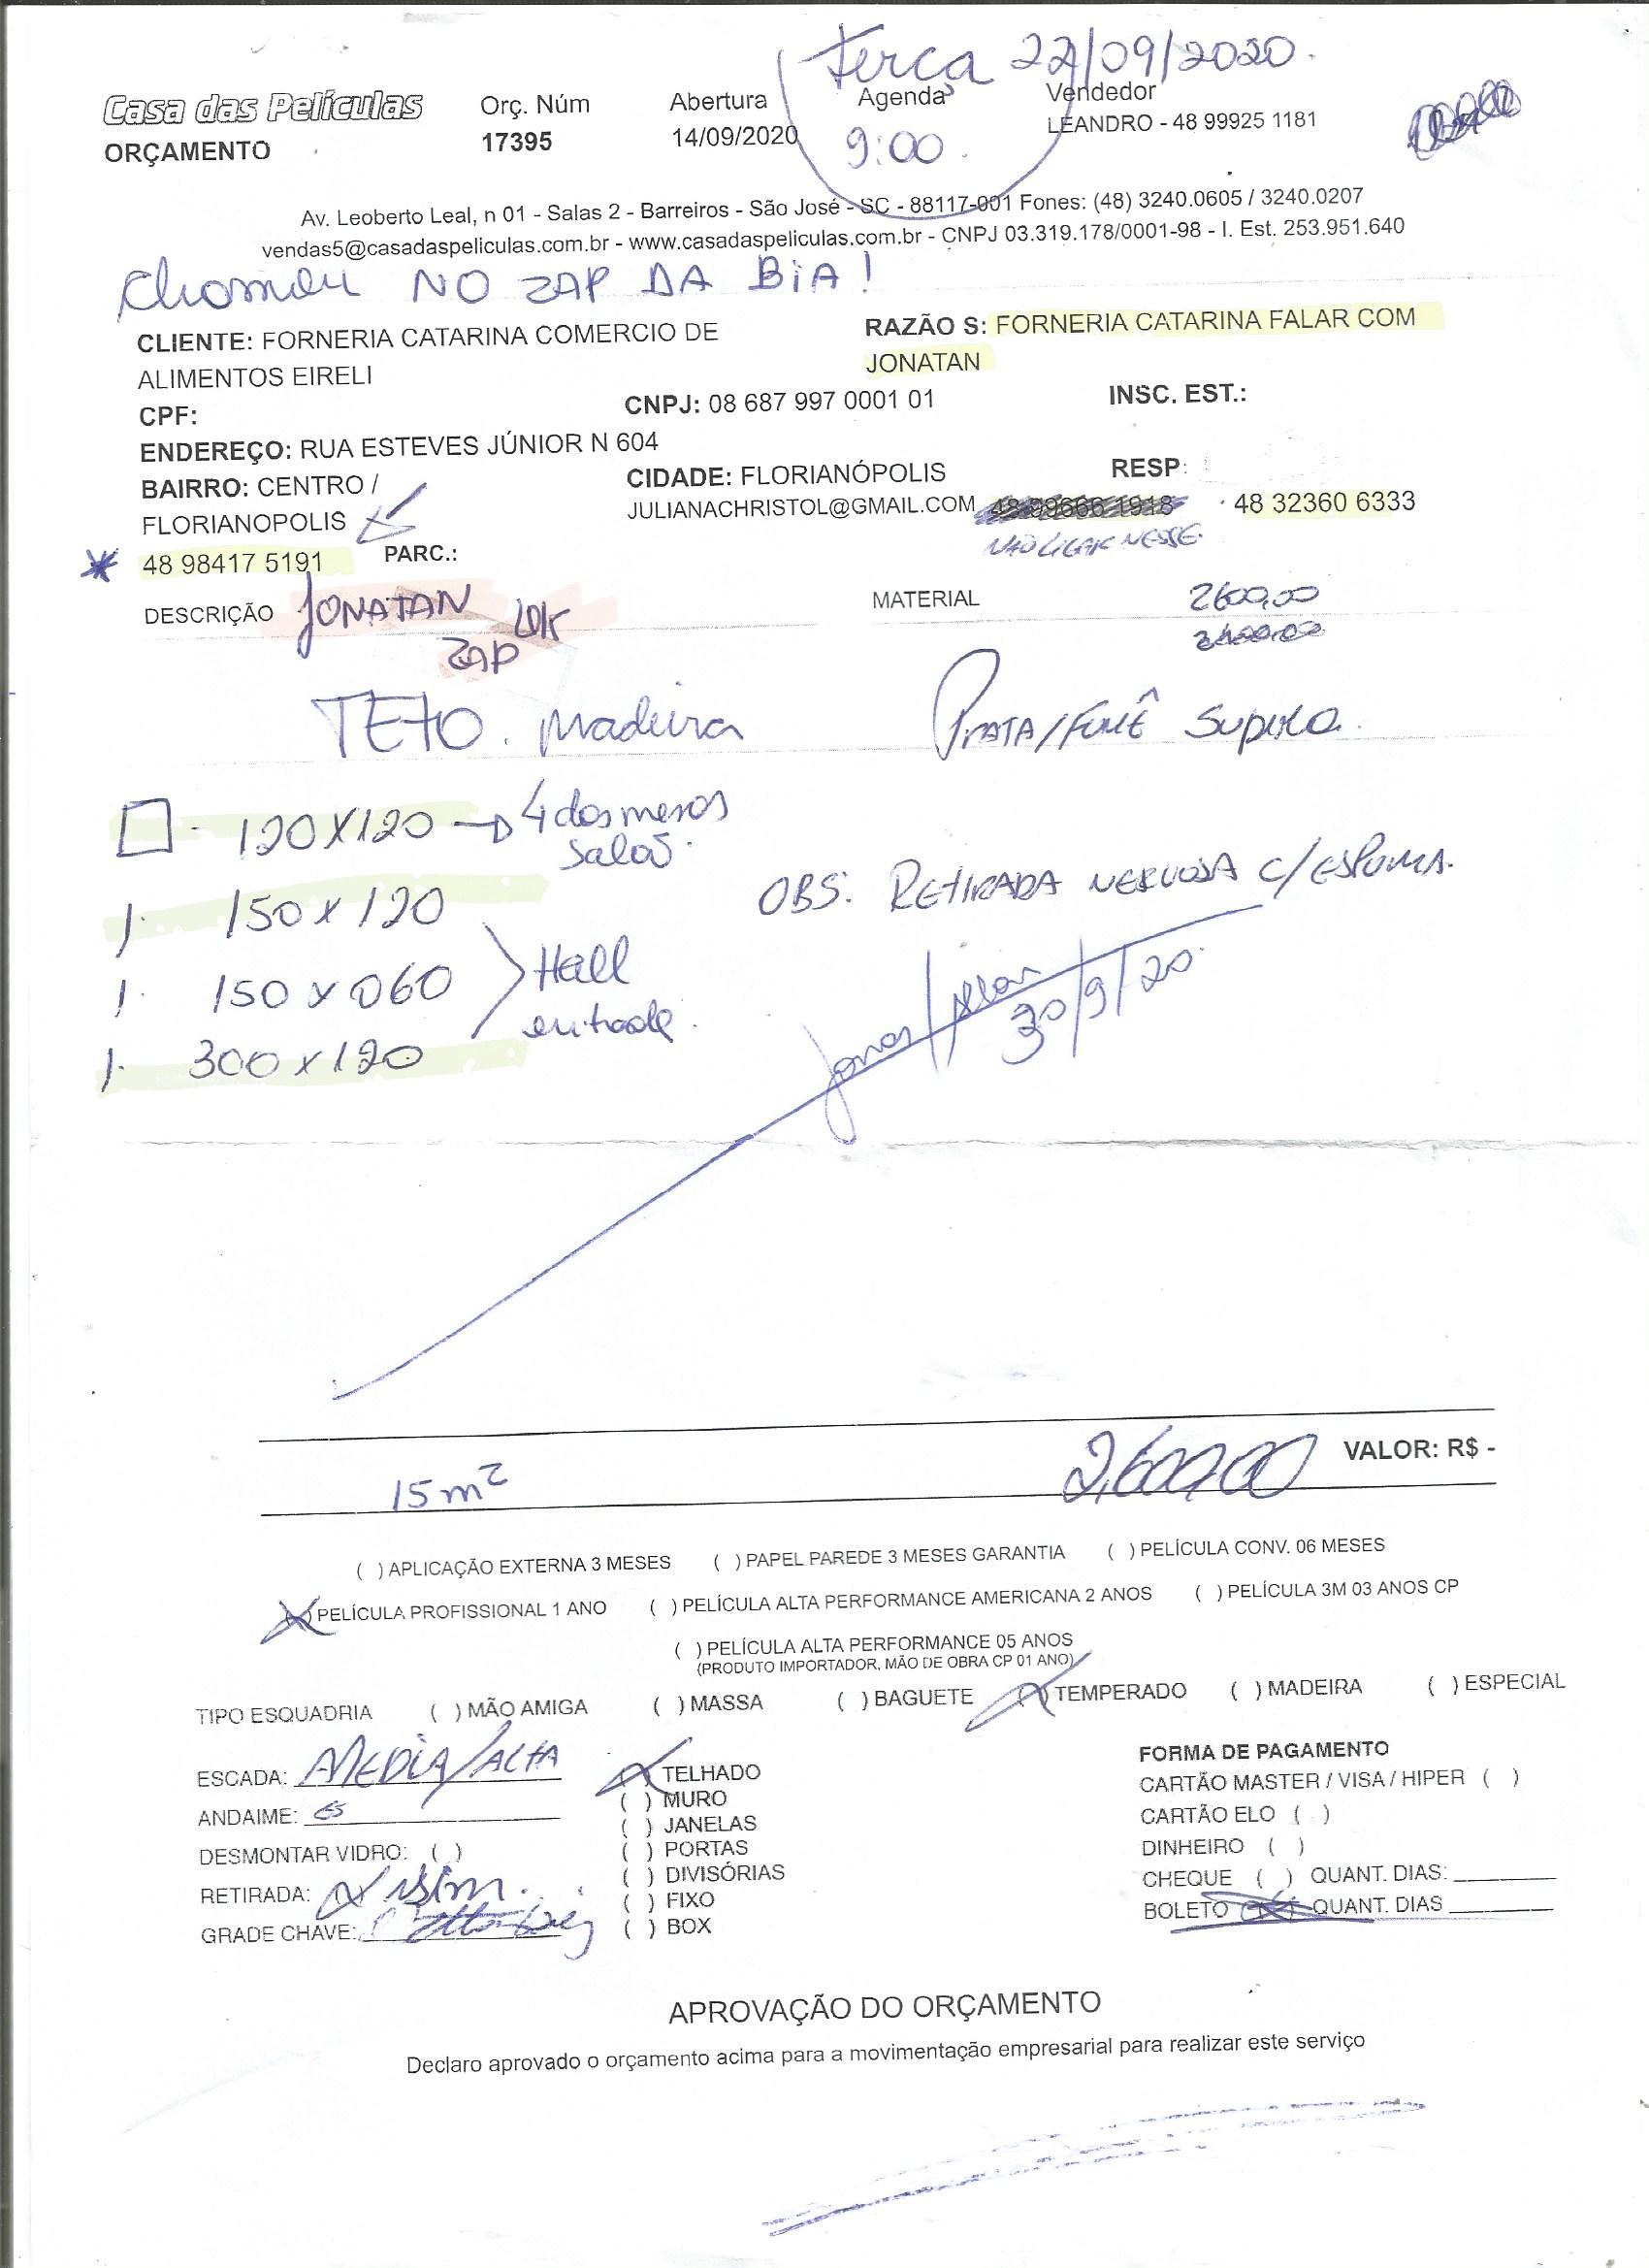 terça 22/09/2020.
Casa das Películas Orç. Núm Abertura Agenda Vendedor
ORÇAMENTO 17395 14/09/2020 9:00. LEANDRO - 48 99925 1181
Av. Leoberto Leal, n 01 - Salas 2 - Barreiros - São José - SC - 88117-001 Fones: (48) 3240.0605 / 3240.0207
vendas5@casadaspeliculas.com.br - www.casadaspeliculas.com.br - CNPJ 03.319.178/0001-98 - I. Est. 253.951.640
NO ZAP DA BIA!
CLIENTE: FORNERIA CATARINA COMERCIO DE RAZÃO S: FORNERIA CATARINA FALAR COM
ALIMENTOS EIRELI JONATAN
CPF: CNPJ: 08 687 997 0001 01 INSC. EST.:
ENDEREÇO: RUA ESTEVES JÚNIOR N 604
BAIRRO: CENTRO / CIDADE: FLORIANÓPOLIS RESP:
FLORIANOPOLIS JULIANACHRISTOL@GMAIL.COM 48 99666 1918 48 32360 6333
NÃO LIGAR NESSE.
48 98417 5191 PARC.:
DESCRIÇÃO JONATAN MATERIAL 2600,00
ZAP
TETO. madeira PRATA/FUMÊ
120X120 → 4 dos menos
salão.
1. 150 x 120 OBS: RETIRADA NERVOSA C/ESPUMA.
1. 150 x 060 Hall
entrada.
1. 300 x 120 30/9/20.
15 m² 2.600,00 VALOR: R$ -
( ) APLICAÇÃO EXTERNA 3 MESES ( ) PAPEL PAREDE 3 MESES GARANTIA ( ) PELÍCULA CONV. 06 MESES
(X) PELÍCULA PROFISSIONAL 1 ANO ( ) PELÍCULA ALTA PERFORMANCE AMERICANA 2 ANOS ( ) PELÍCULA 3M 03 ANOS CP
( ) PELÍCULA ALTA PERFORMANCE 05 ANOS
(PRODUTO IMPORTADOR, MÃO DE OBRA CP 01 ANO)
TIPO ESQUADRIA ( ) MÃO AMIGA ( ) MASSA ( ) BAGUETE (X) TEMPERADO ( ) MADEIRA ( ) ESPECIAL
ESCADA: MEDIA/ALTA (X) TELHADO FORMA DE PAGAMENTO
ANDAIME: ( ) MURO CARTÃO MASTER / VISA / HIPER ( )
( ) JANELAS CARTÃO ELO ( )
DESMONTAR VIDRO: ( ) ( ) PORTAS DINHEIRO ( )
RETIRADA: (X) sim. ( ) DIVISÓRIAS CHEQUE ( ) QUANT. DIAS:
( ) FIXO BOLETO (X) QUANT. DIAS
GRADE CHAVE: ( ) BOX
APROVAÇÃO DO ORÇAMENTO
Declaro aprovado o orçamento acima para a movimentação empresarial para realizar este serviço